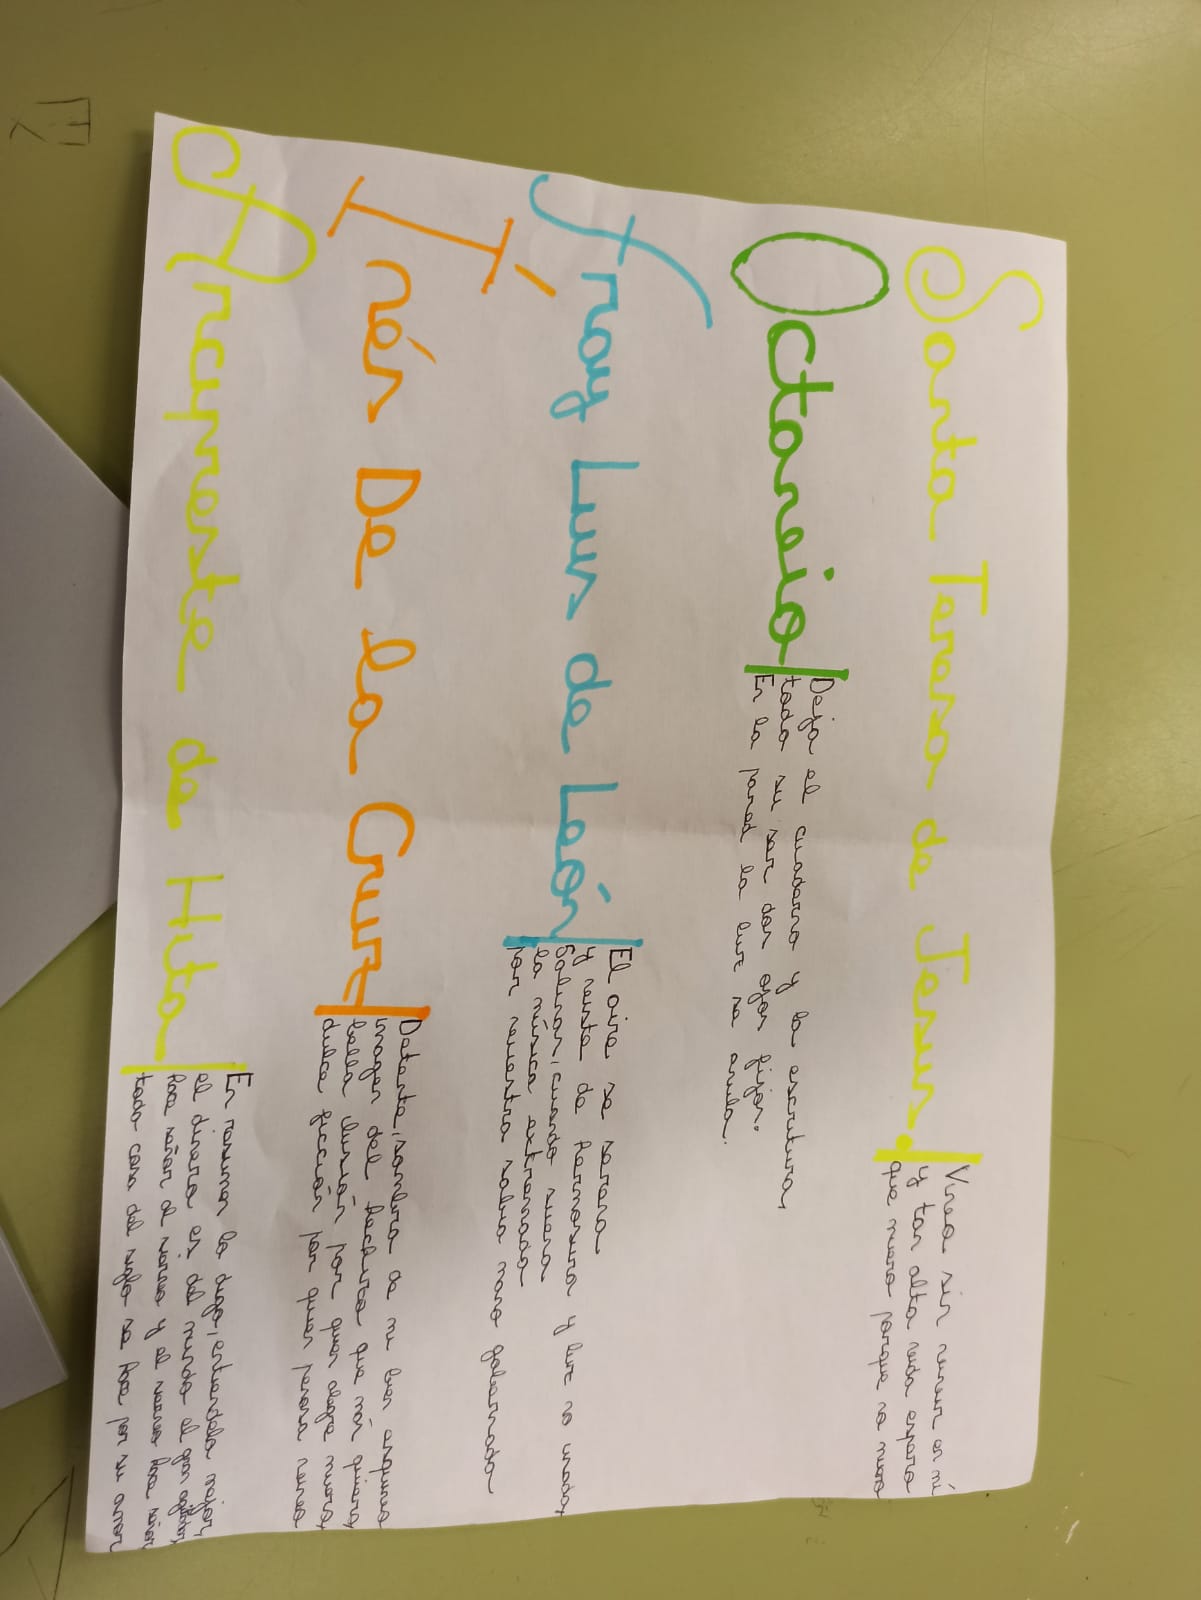 Santa Teresa de Jesus.
Vivo sin vivir en mí
y tan alta vida espero
que muero porque no muero
Octavio
Deja el cuaderno y la escritura,
todo su ser dos ojos fijos.
En la pared la luz se anula.
Fray Luis de León
El aire se serena
y viste de hermosura y luz no usada,
Salinas, cuando suena
la música extremada
por vuestra sabia mano gobernada
Inés De la Cruz
Detente, sombra de mi bien esquivo
imagen del hechizo que más quiero,
bella ilusión por quien alegre muero,
dulce ficción por quien penosa vivo
Arcipreste de Hita
En resumen lo digo, entiéndelo mejor,
el dinero es del mundo el gran agitador,
hace señor al siervo y al siervo hace señor
toda cosa del siglo se hace por su amor